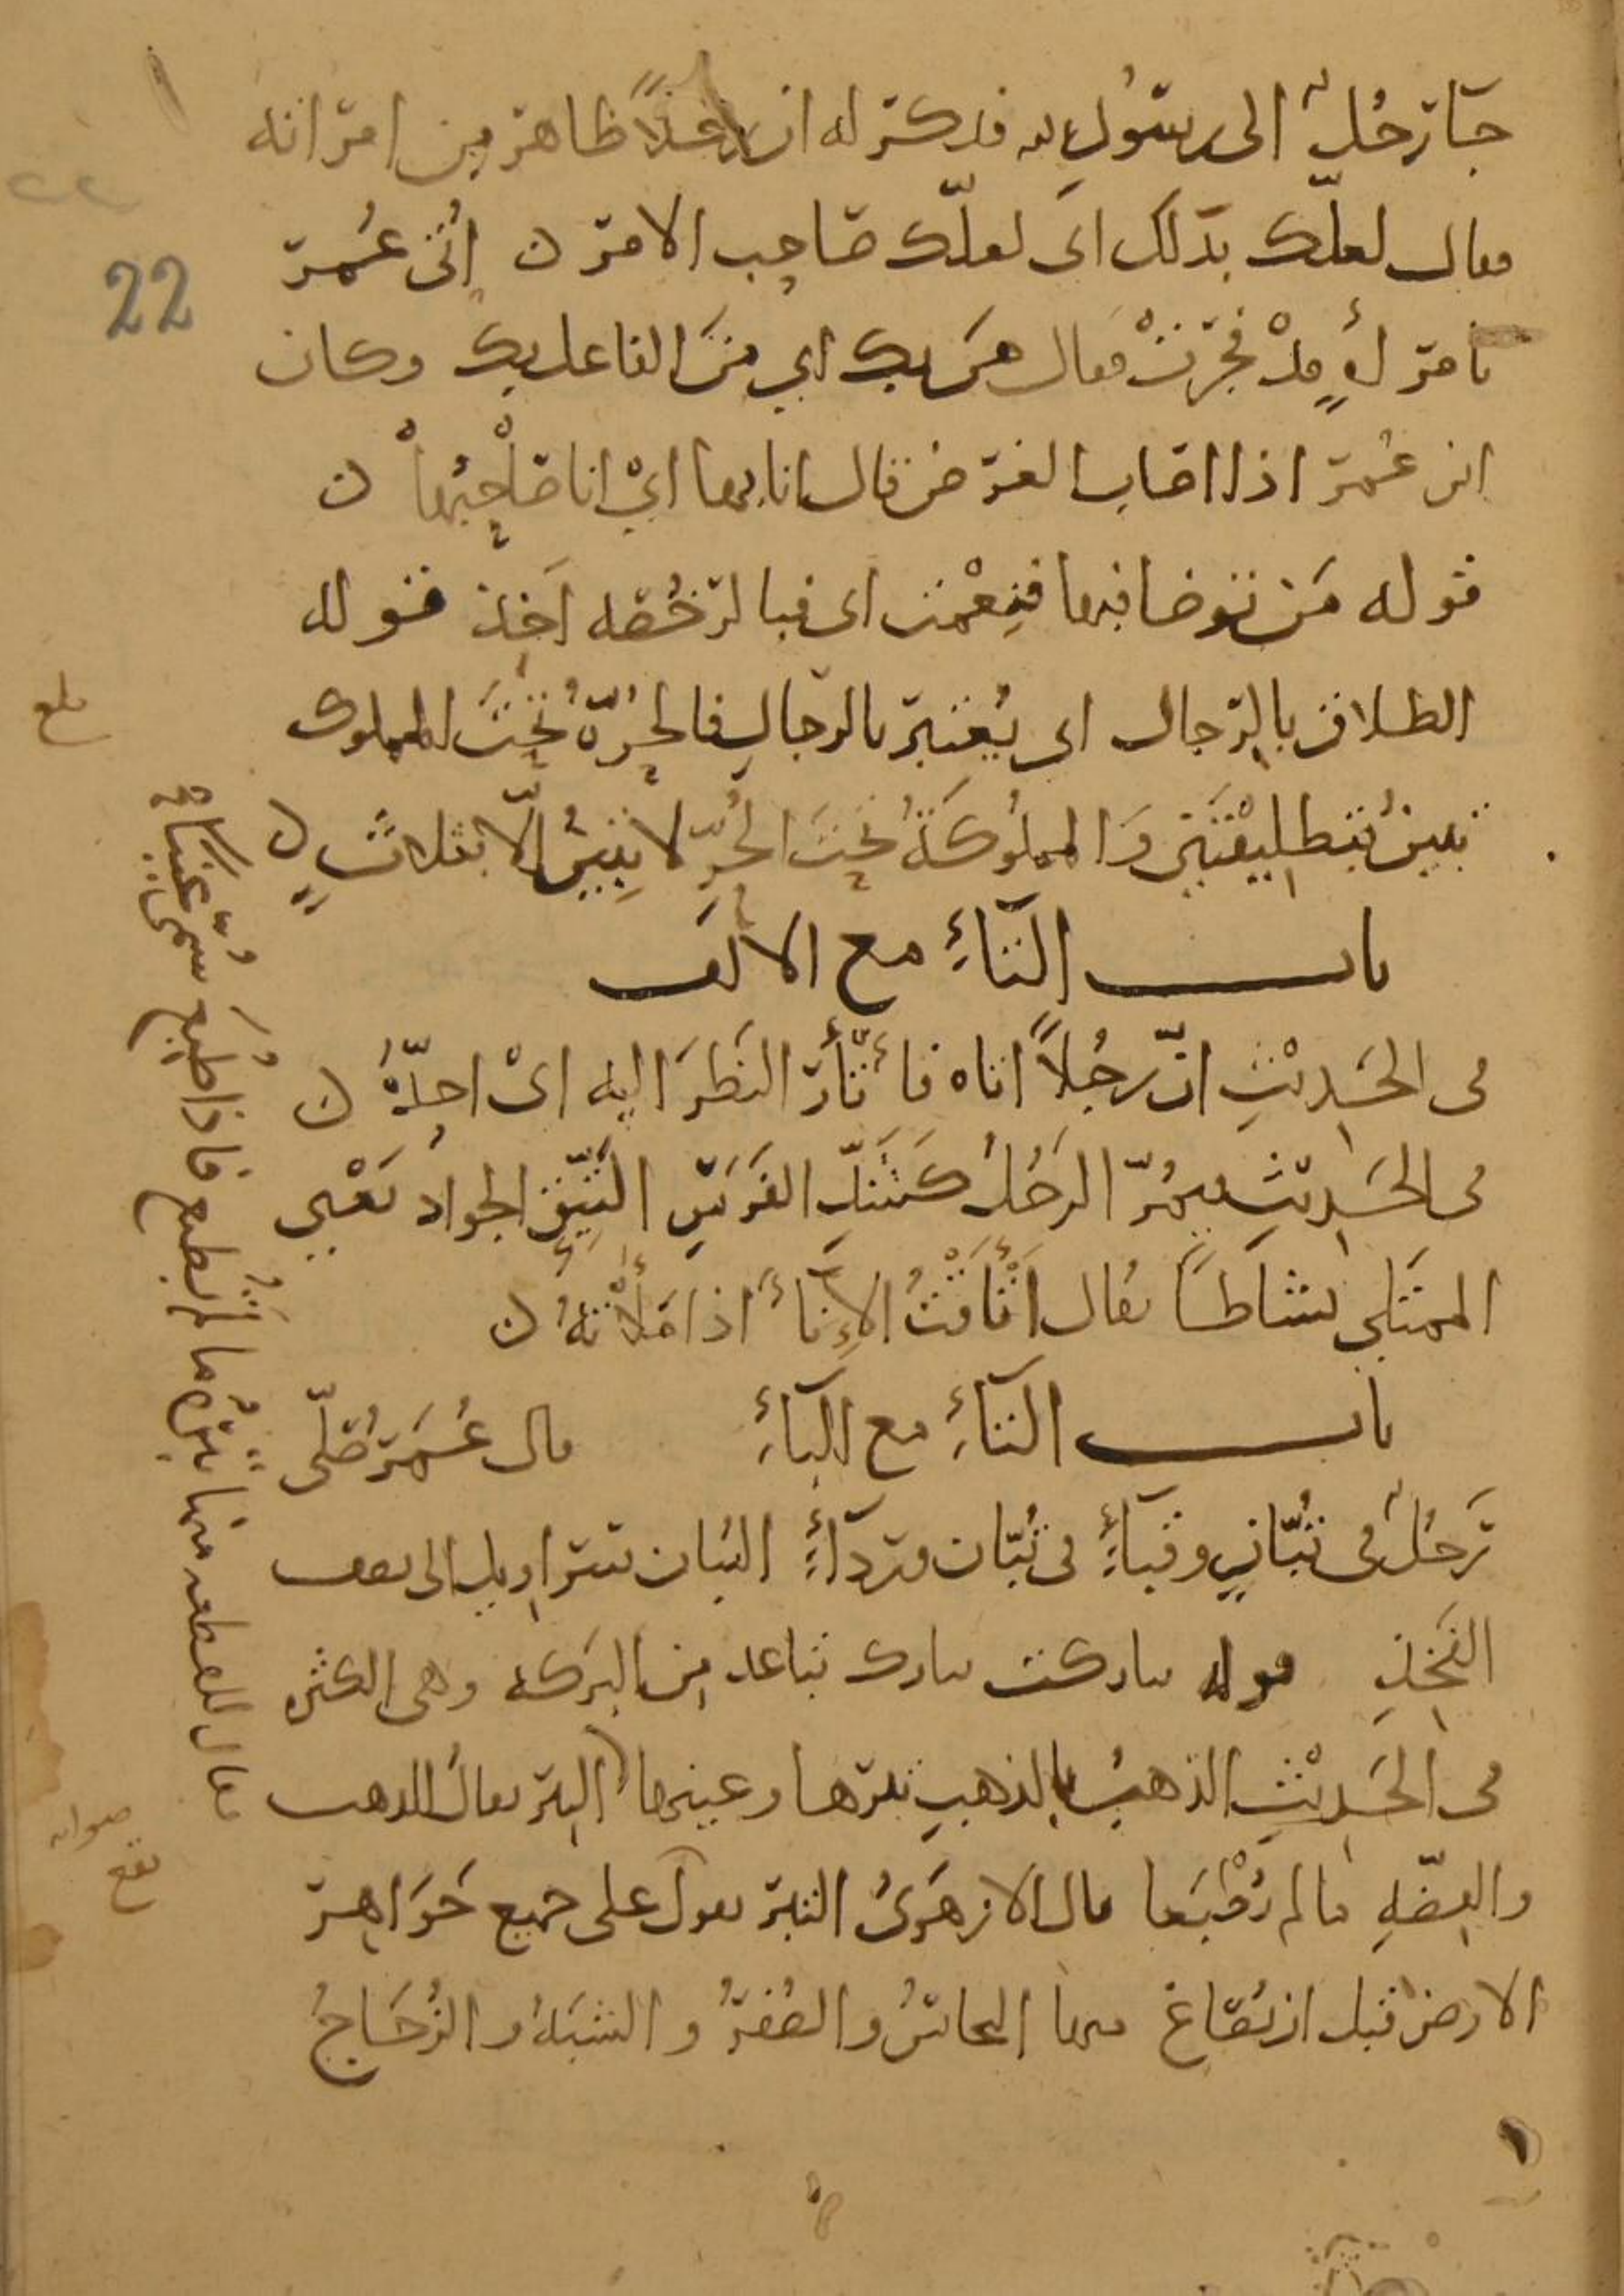 جَآ رَجُلٌ الى رسُولِ الله فذكر له ان رجلًا ظاهر من امرانه
فقال لعلّك بذلك اى لعلّك صاحب الامر ن اُتى عُمر
بامرأةٍ قدْ فجرتْ فقال من بك اي مَن الفاعل بك وكان
ابن عُمر اذا اصاب الغرض قال انا بها ايْ انا صاحبُها ن
قوله مَن توضا فبها ونِعْمت اى فبالرخصه اَخذ قوله
الطلاق بالرّجال اى يُعتبر بالرجالِ فالحُرّةُ تحتَ المملوك
تبينُ بتطليقتين وَالمملوُكَةُ تحتَ الحُرِّ لا تبينُ الّا بثلاثٍ ن
باب التآءِ مع الالف
فى الحَديْثِ انّ رجُلاً اتاه فأتْأر النظرَ اليه اىْ احدّهُ ن
فى الحَديثِ فيمُرّ الرجُلُ كَشَدِّ الفَرَسِ التَئِقِ الجواد يَعْني
الممتلي نشاطاً يقال اَتْأقتُ الإنآءَ اذا مَلأتهُ ن
باب التآءِ مع البآءِ قال عُمَر صَلّى
رَجُلٌ فى تُبّانٍ وقبآءٍ فى تُبّان ورِدآءٍ التبان سراويل الى نصف
الفَخِذِ قوله تباركت تبارك تفاعل من البركة وهى الكثره
فى الحَديْثِ الذهبُ بالذهبِ تبرها وعينها التبر يقال للذهب
والفِضّهِ ما لم يُطْبَعا قال الازهَرىُ التبر يقول على جميع جَوَاهر
الارض قبل ان يُصَاغ منها النحاسُ والصُفرُ والشبَهُ والزُجَاجُ
22
بلغ
يقال للقطعه منها تبرُه ما لم تُطبع فاذا طُبِعَ سُمّى عينًا
صوابه
يقع